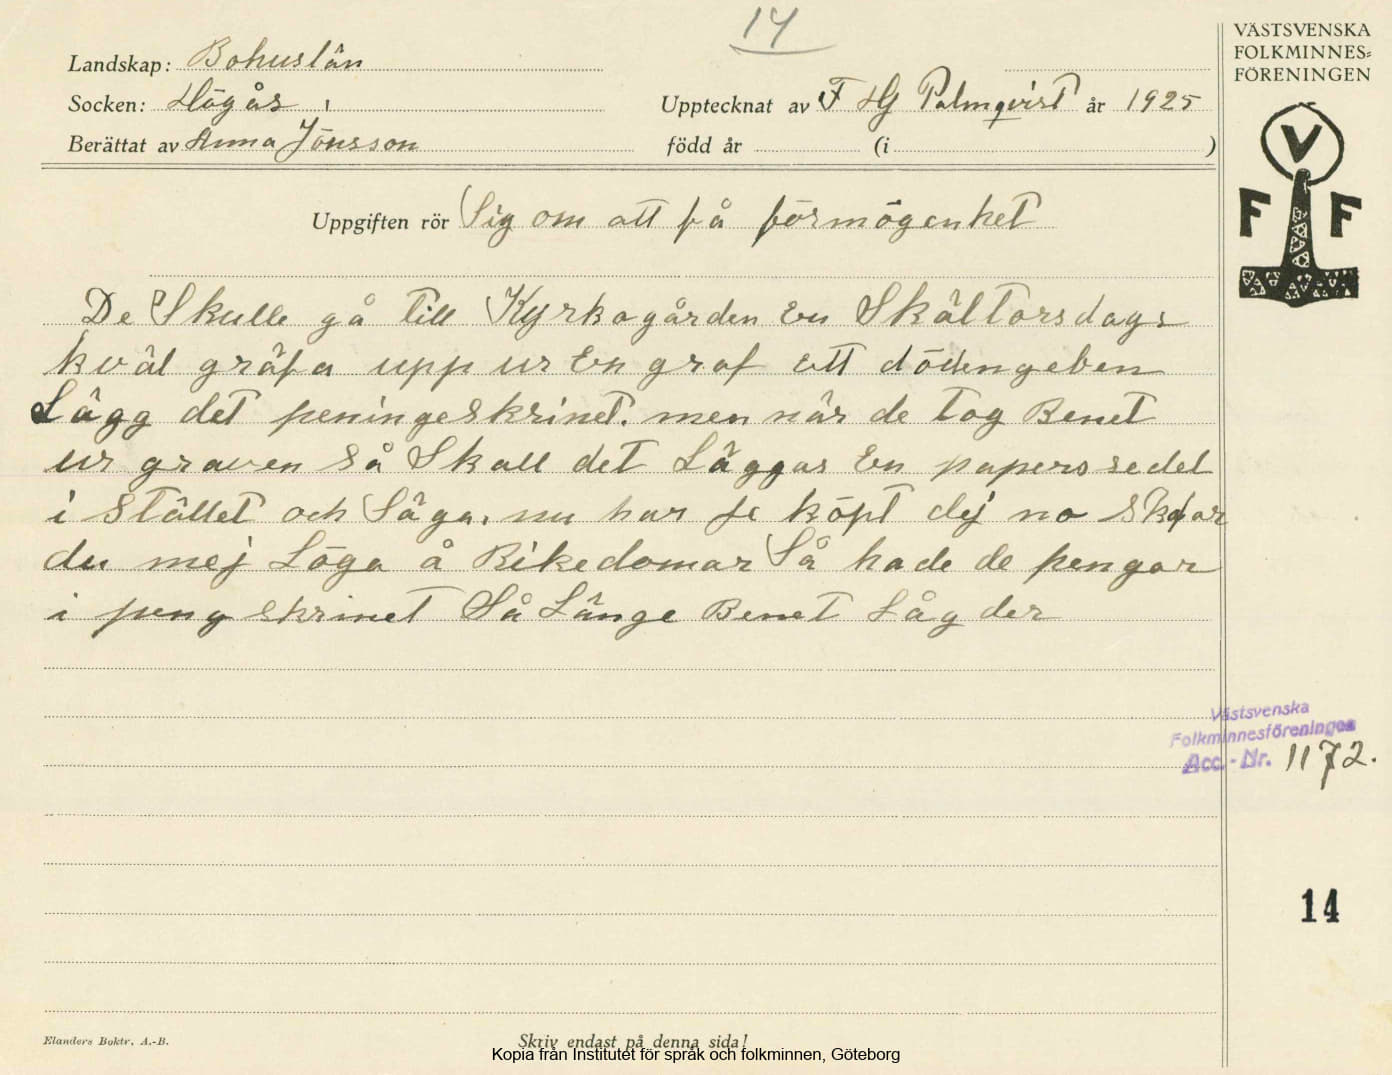 14
VÄSTSVENSKA
FOLKMINNES-
FÖRENINGEN
Landskap: Bohuslän
Socken: Högås
Upptecknat av F HG Palmqvist år 1925
Berättat av Anna Jönsson
född år (i )
V
F F
Uppgiften rör Sig om att få förmögenhet
De Skulle gå till Kyrkogården En Skältorsdags
kväl gräfa upp ur En graf ett dödengeben
Lägg det peningeskrinet. men när de tog Benet
ur graven så Skall det Läggas En paperssedel
i Stället och Säga. nu har je köpt dej no skaf
du mej Löga å Rikedomar Så hade de pengar
i peng skrinet Så Länge Benet Låg der
Västsvenska
Folkminnesföreningen
Acc.-Nr. 1172.
14
Elanders Boktr. A.-B.
Skriv endast på denna sida!
Kopia från Institutet för språk och folkminnen, Göteborg